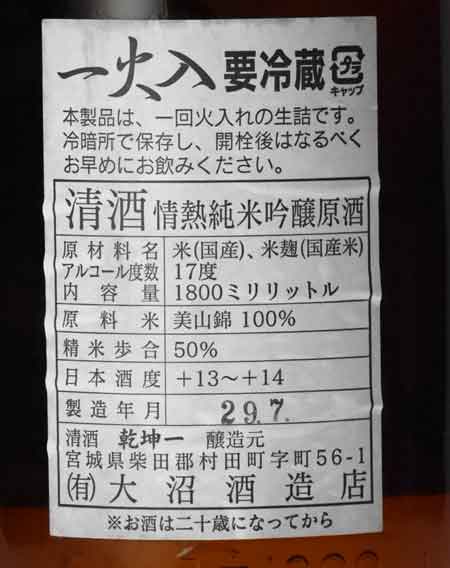 一火入 要冷蔵 プラ
キャップ
本製品は、一回火入れの生詰です。
冷暗所で保存し、開栓後はなるべく
お早めにお飲みください。
清酒 情熱純米吟醸原酒
原材料名 米(国産)、米麹(国産米)
アルコール度数 17度
内容量 1800ミリリットル
原料米 美山錦 100%
精米歩合 50%
日本酒度 +13〜+14
製造年月 29.7.
清酒 乾坤一 醸造元
宮城県柴田郡村田町字町56-1
㈲ 大沼酒造店
※お酒は二十歳になってから